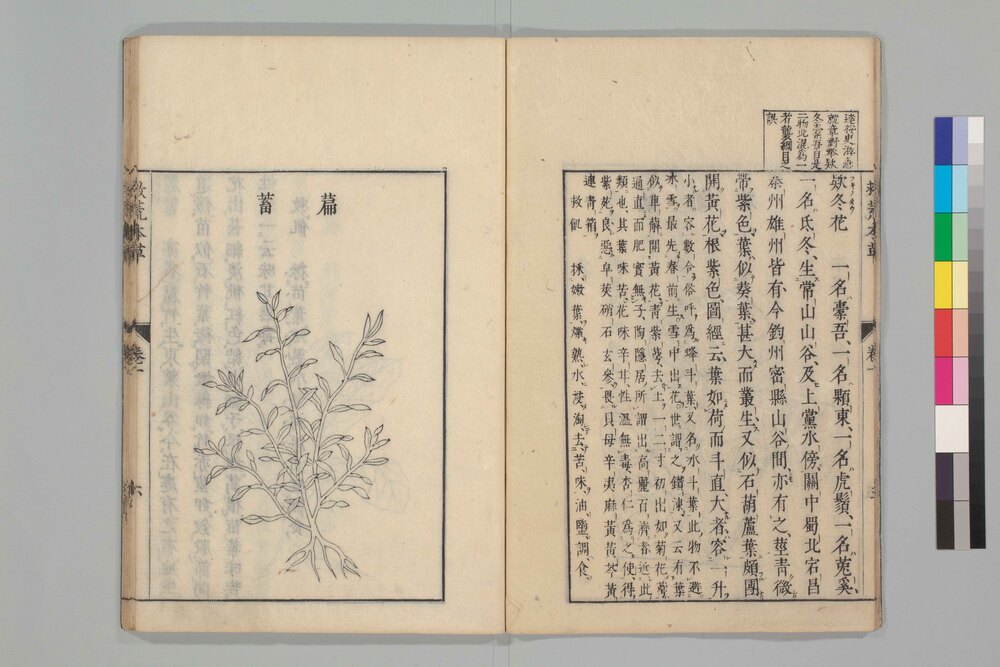 欵冬花 一名橐吾一名顆東一名虎鬚一名菟奚
一名氐冬生常山山谷及上黨水傍關中蜀北宕昌
秦州雄州皆有今鈞州密縣山谷間亦有之莖青微
帶紫色葉似葵葉甚大而叢生又似石葫蘆葉頗團
開黃花根紫色圖經云葉如荷而斗直大者容一升
小者容數合俗呼爲蜂斗葉又名水斗葉此物不避
冰雪最先春前生雪中出花世謂之鑽凍又云有葉
似萆薢開黃花青紫萼去土一二寸初出如菊花萼
通直而肥實無子陶隱居所謂出高麗百濟者近此
類也其葉味苦花味辛甘性溫無毒杏仁爲之使得
紫菀良惡皁莢硝石玄參畏貝母辛夷麻黃黃芩黃
連青葙
救飢 採嫩葉煠熟水浸淘去苦味油鹽調食
救荒本草
卷一
萹
蓄
救荒本草 卷一 六